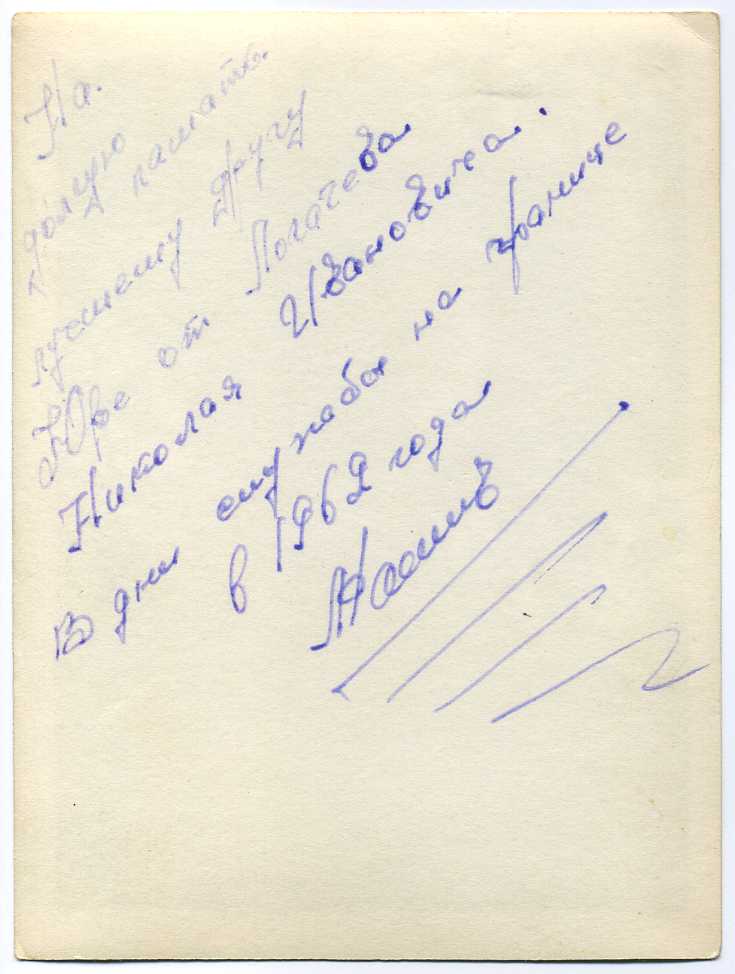 На.
долгую память
лучшему Другу
Юре от Логачева
Николая Ивановича.
Во дни службы на границе
в 1962 года